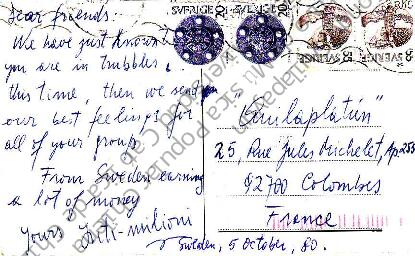 Dear friends.
We have just knownt
you are in trubbles
this time, then we send
our best feelings for
all of your group
From Sweden earning
a lot of money
Yours Inti-milioni
SVERIGE 20
SVERIGE 20
SVERIGE
SVERIGE
"Quilapalún"
25, Rue Jules Michelet, Ap. 253
92700 Colombes
France
Sweden, 5 October, 80.